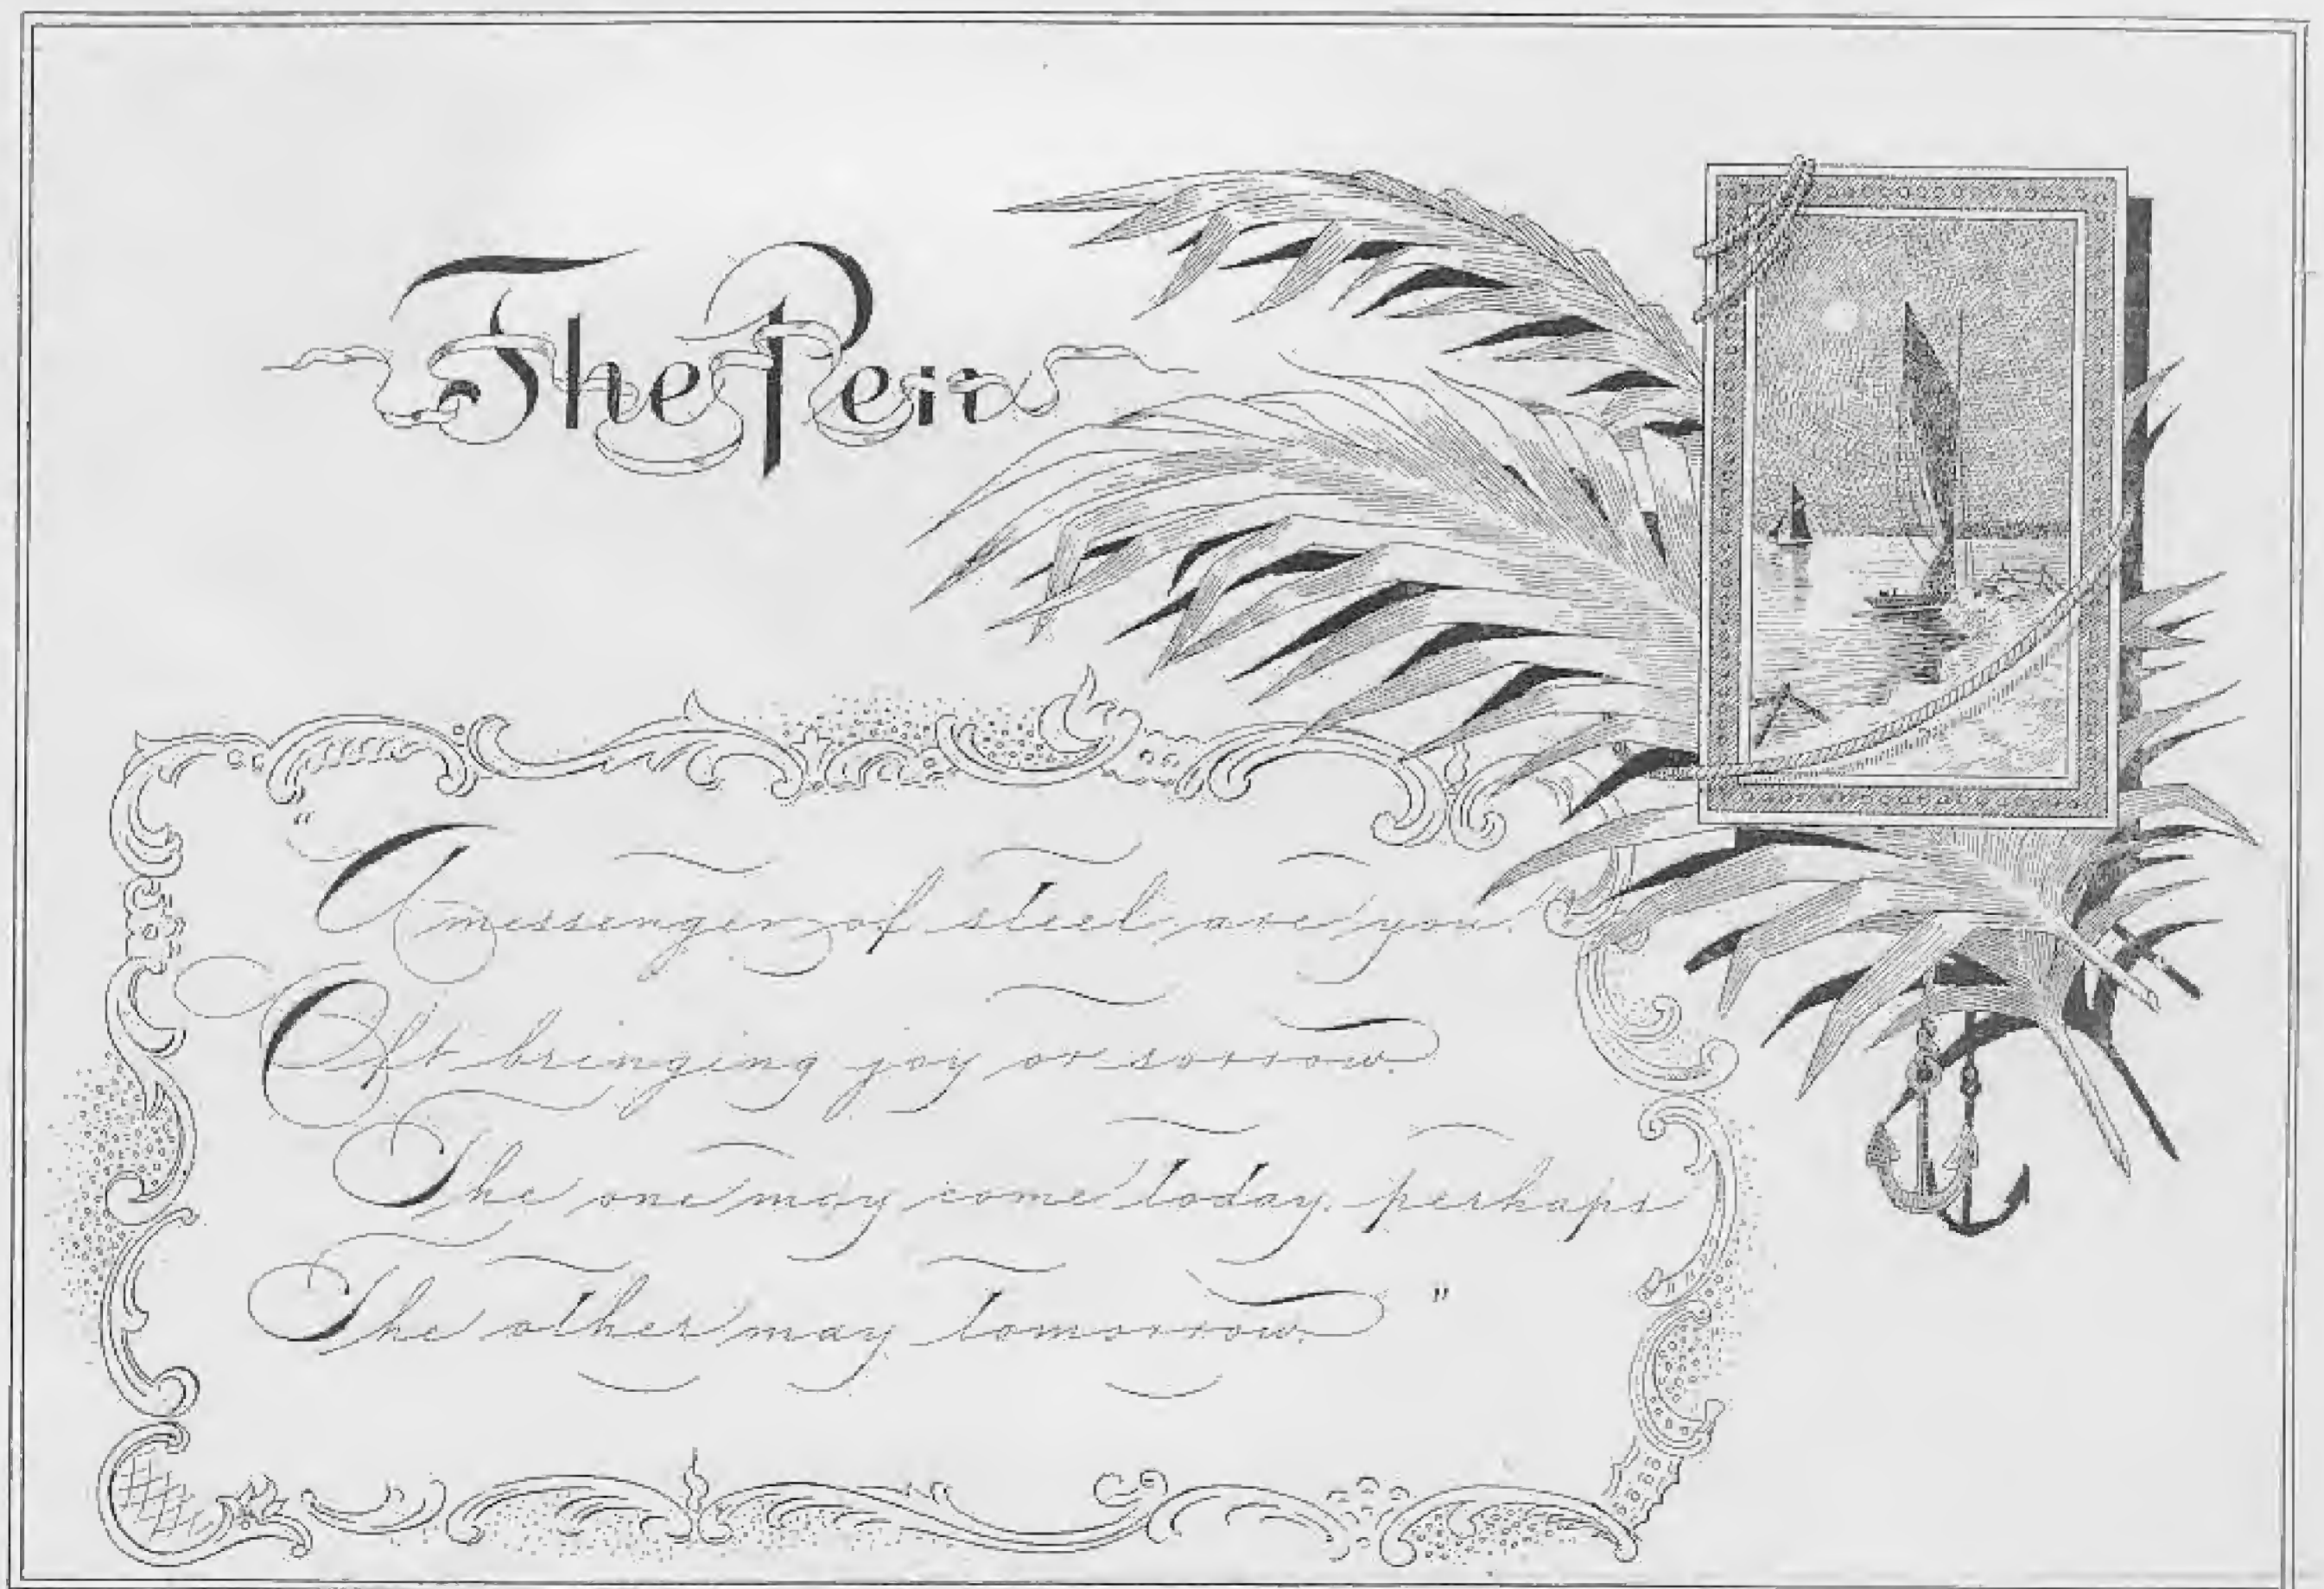 The Pen
"A messenger of steel are you.
Oft bringing joy or sorrow.
The one may come today, perhaps
The other may tomorrow."